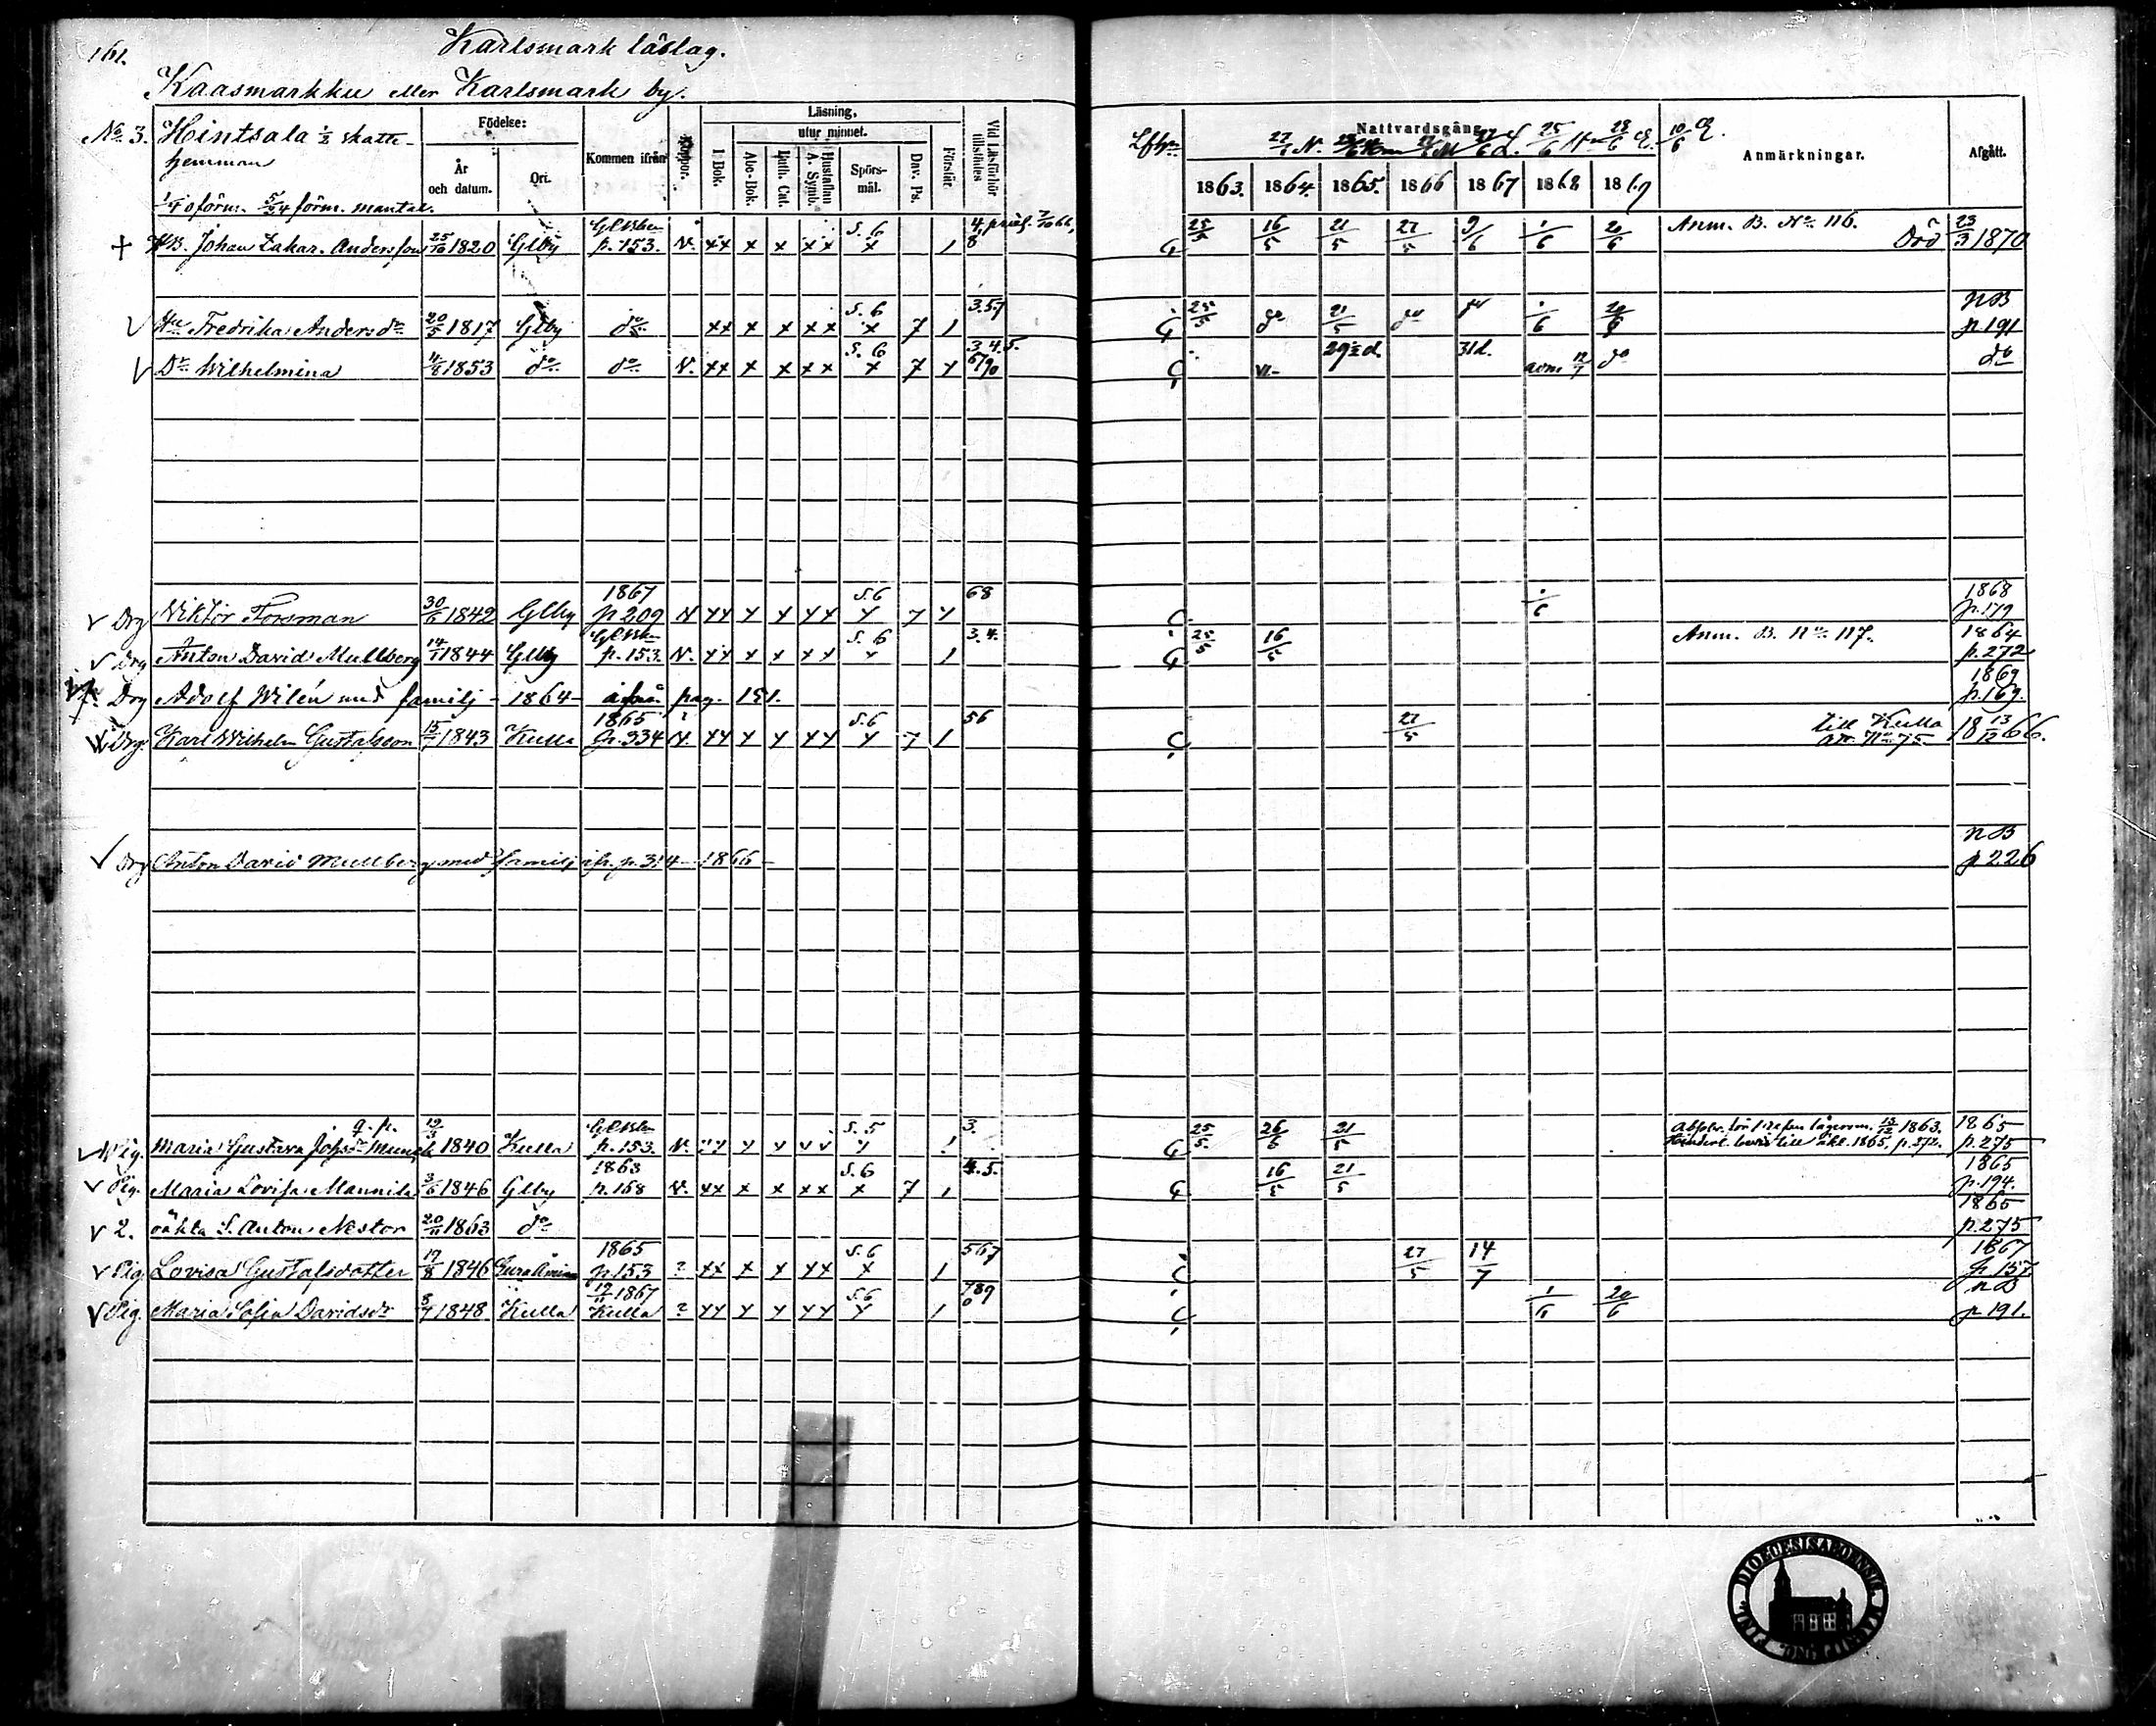 161.
Karlsmark läslag.
Kaasmarkku eller Karlsmark by.
No 3. Hintsala 1/2 skatte-
hemman
1/4 oförm. 5/24 förm. mantal.
Födelse:
År och datum.
Ort.
Kommen ifrån
Koppor.
Läsning,
utur minnet.
I Bok.
Abc-Bok.
Luth. Cat.
Hustaflan A. Symb.
Spörs-mål.
Dav. Ps.
Förstår.
Vid Läsförhör tillstädes
Lfhr
Nattvardsgång
1863. 1864. 1865. 1866 1867 1868 1869
Anmärkningar.
Afgått.
+ Johan Zakar. Andersson 25/10 1820 Glby p. 153. V. xx x x xx S. 6 x 1 4 8 25/5 16/5 21/5 27/5 9/6 /6 20/6 Anm. B. No 116. Död 23/3 1870
Fredrika Andersdr 20/5 1817 Glby do xx x x xx S. 6 x 7 1 3.57 25/5 do 21/5 do do /6 20/6 NB p. 191
Dr Wilhelmina 11/6 1853 do do V. xx x x xx S. 6 x 7 x 3.4.5. 679 29 d. 31 d. adm. 12/7 do do
Drg Viktor Forsman 30/6 1842 Glby 1867 p 209 V xx x x xx S.6 x 7 x 68 /6 1868 p. 179
Drg Anton David Mullberg 14/1 1844 Glby p. 153. V. xx x x xx S. 6 x 1 3.4. 25/5 16/5 Anm. B. No 117. 1864 p. 272
Drg Adolf Wilén med familj - 1864 - ifrån pag. 151. 1869 p. 169.
Drg. Karl Wilhelm Gustafsson 15/7 1843 Kulla 1865 p. 334 V. xx x x xx S.6 x 7 1 56 27/5 till Kulla att. No 75. 18 13/12 66.
Drg Anton David Mullberg med familj ifr. p. 314 - 1866 - NB p 226
Pig. Maria Gustava Johsdr Munck q. p. 12/3 1840 Kulla p. 153. V. xx x x xx S. 5 x 1 3. 25/5. 26/6 21/5 1863. 1865. p. 272. 1865 p. 275
Pig. Maria Lovisa Mannila 3/6 1846 Glby 1863 p. 158 V. xx x x xx S. 6 x 7 1 4.5. 16/5 21/5 1865 p. 194.
2. oäkta S. Anton Nestor 20/11 1863 do 1865 p. 275
Pig. Lovisa Gustafsdotter 19/8 1846 Eura 1865 p. 153 ? xx x x xx S.6 x 1 567 27/5 14/7 1867 p. 157
Pig. Maria Sofia Davidsdr 8/7 1848. Kulla 1867 Kulla ? xx x x xx S.6 x 1 789 0 1/6 20/6 NB p. 191.